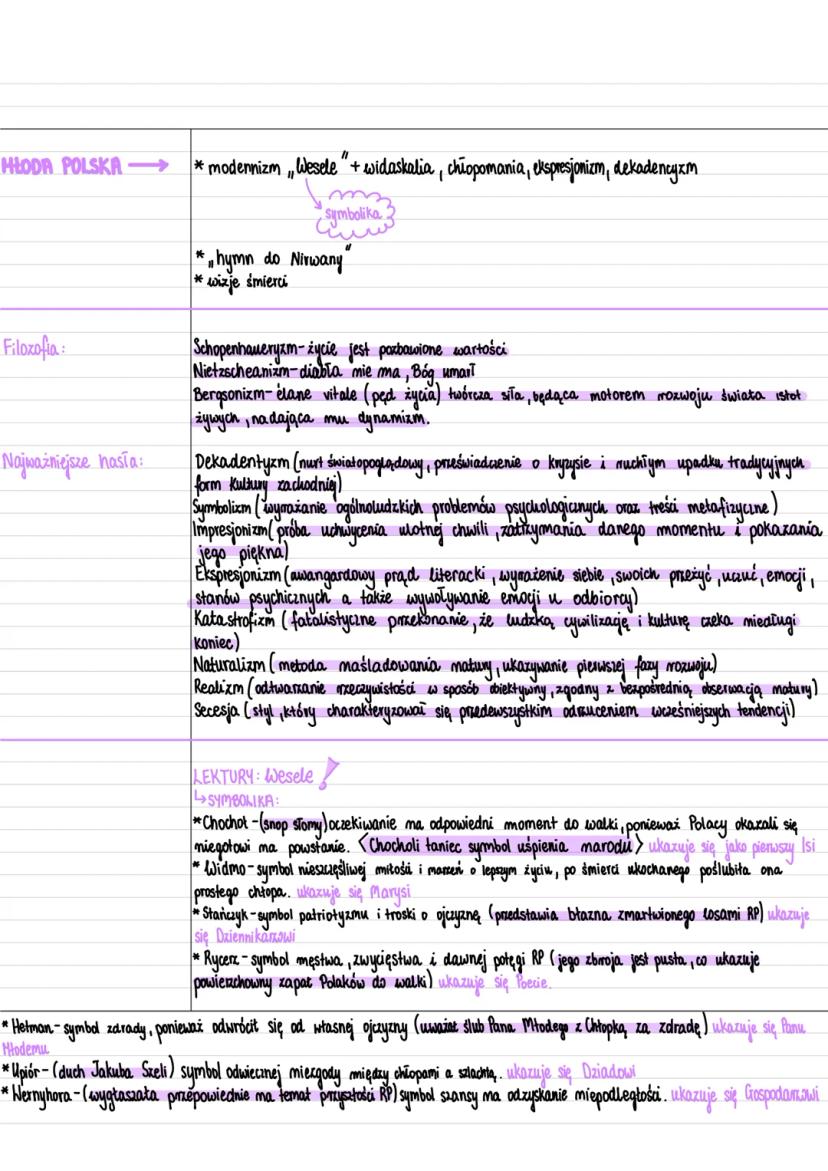 MŁODA POLSKA → * modernizm „Wesele" + widaskalia, chłopomania, ekspresjonizm, dekadencyzm
symbolika
* „hymn do Nirwany"
* wizje śmierci
Filozofia: Schopenhaueryzm- życie jest pozbawione wartości
Nietzscheanizm- diabła nie ma, Bóg umarł
Bergsonizm- élane vitale (pęd życia) twórcza siła, będąca motorem rozwoju świata istot
żywych, nadająca mu dynamizm.
Najważniejsze hasła: Dekadentyzm (nurt światopoglądowy, przeświadczenie o kryzysie i ruchłym upadku tradycyjnych
form kultury zachodniej)
Symbolizm (wyrażanie ogólnoludzkich problemów psychologicznych oraz treści metafizyczne)
Impresjonizm (próba uchwycenia ulotnej chwili, zatrzymania danego momentu i pokazania
jego piękna)
Ekspresjonizm (awangardowy prąd literacki, wyrażenie siebie, swoich przeżyć, uczuć, emocji,
stanów psychicznych a także wywoływanie emocji u odbiorcy)
Katastrofizm (fatalistyczne przekonanie, że ludzką cywilizację i kulturę czeka niedługi
koniec)
Naturalizm (metoda naśladowania natury, ukazywanie pierwszej fazy rozwoju)
Realizm (odtwarzanie rzeczywistości w sposób obiektywny, zgodny z bezpośrednią obserwacją natury)
Secesja (styl, który charakteryzował się przedewszystkim odrzuceniem wcześniejszych tendencji)
LEKTURY: Wesele !
↳ SYMBOLIKA:
* Chochoł - (snop słomy) oczekiwanie na odpowiedni moment do walki, ponieważ Polacy okazali się
niegotowi na powstanie. <Chocholi taniec symbol uśpienia narodu> ukazuje się jako pierwszy Isi
* Widmo - symbol nieszczęśliwej miłości i marzeń o lepszym życiu, po śmierci ukochanego poślubiła ona
prostego chłopa. ukazuje się Marysi
* Stańczyk - symbol patriotyzmu i troski o ojczyznę (przedstawia błazna zmartwionego losami RP) ukazuje
się Dziennikarzowi
* Rycerz - symbol męstwa, zwycięstwa i dawnej potęgi RP (jego zbroja jest pusta, co ukazuje
powierzchowny zapał Polaków do walki) ukazuje się Poecie.
* Hetman - symbol zdrady, ponieważ odwrócił się od własnej ojczyzny (uważał ślub Pana Młodego z Chłopką za zdradę) ukazuje się Panu
Młodemu
* Upiór - (duch Jakuba Szeli) symbol odwiecznej niezgody między chłopami a szlachtą. ukazuje się Dziadowi
* Wernyhora - (wygłaszała przepowiednie na temat przyszłości RP) symbol szansy na odzyskanie niepodległości. ukazuje się Gospodarzowi